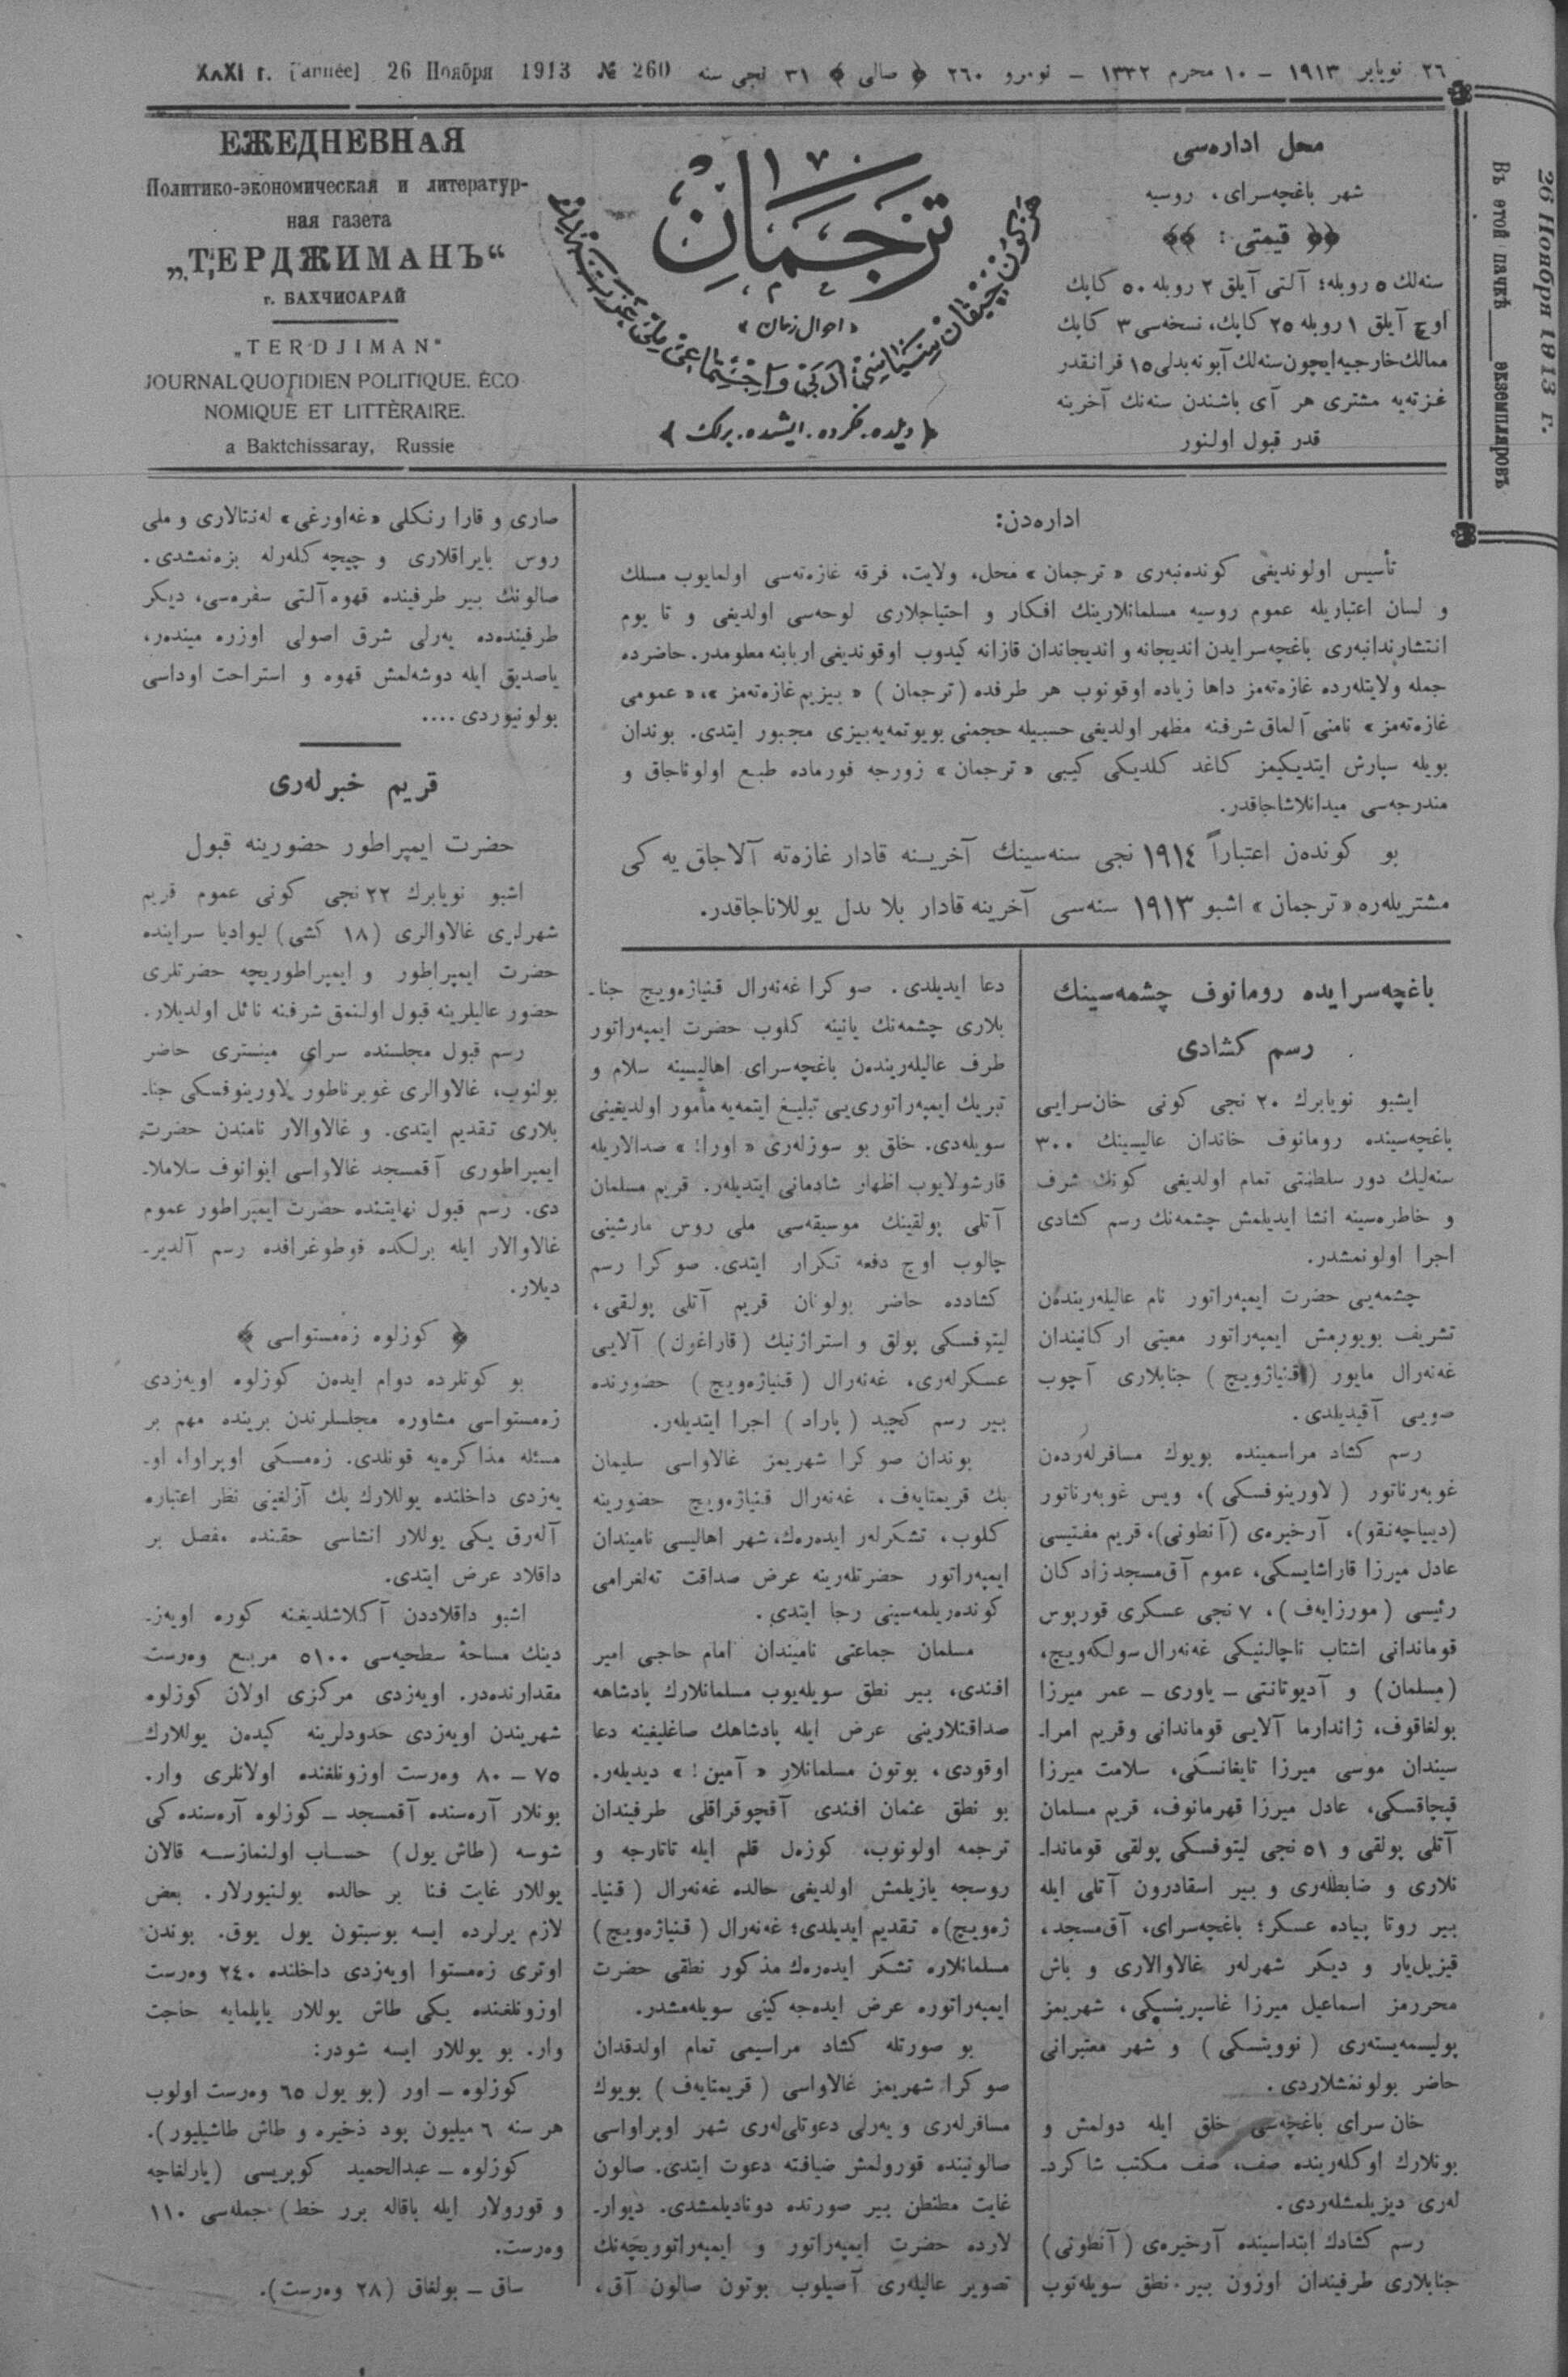 ٢٦ نویابر ١٩١٣ – ١٠ محرم ١٣٣٢ – نومرو ٢٦٠ ﴿ صالی ﴾ ٣١ نجی سنه
26 Ноября 1913 № 260
[année]
محل اداره‌سی
شهر باغچه‌سرای، روسیه
﴿﴿ قیمتی: ﴾﴾
سنه‌لك ٥ روبله؛ آلتی آیلق ٢ روبله ٥٠ کاپك
اوچ آیلق ١ روبله ٢٥ کاپك، نسخه‌سی ٣ کاپك
ممالك خارجیه ایچون سنه‌لك آبونه بدلی ١٥ فرانقدر
غزته‌یه مشتری هر آی باشندن سنه‌نك آخرینه
قدر قبول اولنور
ترجمان
«احوال زمان»
﴿ دیلده، فکرده، ایشده، برلك ﴾
ЕЖЕДНЕВНАЯ
Политико-экономическая и литератур-
ная газета
„ТЕРДЖИМАНЪ“
г. БАХЧИСАРАЙ
„TERDJIMAN"
JOURNAL QUOTIDIEN POLITIQUE. ÈCO-
NOMIQUE ET LITTÈRAIRE.
a Baktchissaray, Russie
26 Ноября 1913 г.
Въ этой пачкѣ ____ экземпляровъ
اداره‌دن:
تأسیس اولوندیغی کونده‌نبه‌ری «ترجمان» محل، ولایت، فرقه غازه‌ته‌سی اولمایوب مسلك
و لسان اعتباریله عموم روسیه مسلمانلارینك افکار و احتیاجلاری لوحه‌سی اولدیغی و تا یوم
انتشارندانبه‌ری باغچه‌سرایدن اندیجانه و اندیجاندان قازانه کیدوب اوقوندیغی اربابنه معلومدر. حاضرده
جمله ولایتله‌رده غازه‌ته‌مز داها زیاده اوقونوب هر طرفده (ترجمان) «بیزیم غازه‌ته‌مز»، «عمومی
غازه‌ته‌مز» نامنی آلماق شرفنه مظهر اولدیغی حسبیله حجمنی بویوتمه‌یه بیزی مجبور ایتدی. بوندان
بویله سپارش ایتدیکیمز کاغد کلدیکی کیبی «ترجمان» زورجه فورماده طبع اولوناجاق و
مندرجه‌سی میدانلاشاجاقدر.
بو کونده‌ن اعتباراً ١٩١٤ نجی سنه‌سینك آخرینه قادار غازه‌ته آلاجاق یه‌کی
مشتریله‌ره «ترجمان» اشبو ١٩١٣ سنه‌سی آخرینه قادار بلا بدل یوللاناجاقدر.
باغچه‌سرایده رومانوف چشمه‌سینك
رسم کشادی
ایشبو نویابرك ٢٠ نجی کونی خان‌سرایی
باغچه‌سینده رومانوف خاندان عالیسینك ٣٠٠
سنه‌لیك دور سلطنتی تمام اولدیغی کونك شرف
و خاطره‌سینه انشا ایدیلمش چشمه‌نك رسم کشادی
اجرا اولونمشدر.
چشمه‌یی حضرت ایمپه‌راتور نام عالیله‌رینده‌ن
تشریف بویورمش ایمپه‌راتور معیتی ارکانیندان
غه‌نه‌رال مایور (قنیاژویچ) جنابلاری آچوب
صویی آقیدیلدی.
رسم کشاد مراسمینده بویوك مسافرله‌رده‌ن
غوبه‌رناتور (لاورینوفسکی)، ویس غوبه‌رناتور
آرخیره‌ی (آنطونی)، قریم مفتیسی
عادل میرزا قاراشایسکی، عموم آق‌مسجد زادکان
رئیسی (مورزایه‌ف)، ٧ نجی عسکری قورپوس
قوماندانی اشتاب ناچالنیکی غه‌نه‌رال سولکه‌ویچ،
(مسلمان) و آدیوتانتی – یاوری – عمر میرزا
بولغاقوف، ژاندارما آلایی قوماندانی وقریم امرا-
سیندان موسی میرزا تایغانسکی، سلامت میرزا
قپچاقسکی، عادل میرزا قهرمانوف، قریم مسلمان
آتلی پولقی و ٥١ نجی لیتوفسکی پولقی قوماندا-
نلاری و ضابطله‌ری و بیر اسقادرون آتلی ایله
بیر روتا پیاده عسکر؛ باغچه‌سرای، آق‌مسجد،
قیزیل‌یار و دیکر شهرله‌ر غالاوالاری و باش
محررمز اسماعیل میرزا غاسپرینسکی، شهریمز
پولیسمه‌یسته‌ری (نوویتسکی) و شهر معتبرانی
حاضر بولونمشلاردی.
خان سرای باغچه‌سی خلق ایله دولمش و
بونلارك اوکله‌رینده صف، صف مکتب شاکرد-
له‌ری دیزیلمشله‌ردی.
رسم کشادك ابتداسینده آرخیره‌ی (آنطونی)
جنابلاری طرفیندان اوزون بیر نطق سویله‌نوب
دعا ایدیلدی. صوکرا غه‌نه‌رال قنیاژه‌ویچ جنا-
بلاری چشمه‌نك یانینه کلوب حضرت ایمپه‌راتور
طرف عالیله‌رینده‌ن باغچه‌سرای اهالیسینه سلام و
تبریك ایمپه‌راتوری‌یی تبلیغ ایتمه‌یه مأمور اولدیغینی
سویله‌دی. خلق بو سوزله‌ری «اورا!» صدالاریله
قارشولایوب اظهار شادمانی ایتدیله‌ر. قریم مسلمان
آتلی پولقینك موسیقه‌سی ملی روس مارشینی
چالوب اوچ دفعه تکرار ایتدی. صوکرا رسم
کشادده حاضر بولونان قریم آتلی پولقی،
لیتوفسکی پولق و استراژنیك (قاراغول) آلایی
عسکرله‌ری، غه‌نه‌رال (قنیاژه‌ویچ) حضورنده
بیر رسم کچید (پاراد) اجرا ایتدیله‌ر.
بوندان صوکرا شهریمز غالاواسی سلیمان
بك قریمتایه‌ف، غه‌نه‌رال قنیاژه‌ویچ حضورینه
کلوب، تشکرله‌ر ایده‌ره‌ك، شهر اهالیسی نامیندان
ایمپه‌راتور حضرتله‌رینه عرض صداقت ته‌لغرامی
کونده‌ریلمه‌سینی رجا ایتدی.
مسلمان جماعتی نامیندان امام حاجی امیر
افندی، بیر نطق سویله‌یوب مسلمانلارك پادشاهه
صداقتلارینی عرض ایله پادشاهك صاغلیغینه دعا
اوقودی، بوتون مسلمانلار «آمین!» دیدیله‌ر.
بو نطق عثمان افندی آقچوقراقلی طرفیندان
ترجمه اولونوب، کوزه‌ل قلم ایله تاتارجه و
روسجه یازیلمش اولدیغی حالده غه‌نه‌رال (قنیا-
ژه‌ویچ)ه تقدیم ایدیلدی؛ غه‌نه‌رال (قنیاژه‌ویچ)
مسلمانلاره تشکر ایده‌ره‌ك مذکور نطقی حضرت
ایمپه‌راتوره عرض ایده‌جه‌کینی سویله‌مشدر.
بو صورتله کشاد مراسیمی تمام اولدقدان
صوکرا شهریمز غالاواسی (قریمتایه‌ف) بویوك
مسافرله‌ری و یه‌رلی دعوتلی‌له‌ری شهر اوپراواسی
صالونینده قورولمش ضیافته دعوت ایتدی. صالون
غایت مطنطن بیر صورتده دونادیلمشدی. دیوار-
لارده حضرت ایمپه‌راتور و ایمپه‌راتوریچه‌نك
تصویر عالیله‌ری آصیلوب بوتون صالون آق،
صاری و قارا رنکلی «غه‌اورغی» له‌نتالاری و ملی
روس بایراقلاری و چیچه‌کله‌رله بزه‌نمشدی.
صالونك بیر طرفینده قهوه آلتی سفره‌سی، دیکر
طرفینده‌ده یه‌رلی شرق اصولی اوزره میندر،
یاصدیق ایله دوشه‌لمش قهوه و استراحت اوداسی
بولونیوردی....
قریم خبرله‌ری
حضرت ایمپراطور حضورینه قبول
اشبو نویابرك ٢٢ نجی کونی عموم قریم
شهرلری غالاوالری (١٨ کشی) لیوادیا سراینده
حضرت ایمپراطور و ایمپراطوریچه حضرتلری
حضور عالیلرینه قبول اولنمق شرفنه نائل اولدیلار.
رسم قبول مجلسنده سرای مینستری حاضر
بولنوب، غالاوالری غوبرناطور لاورینوفسکی جنا-
بلاری تقدیم ایتدی. و غالاوالار نامندن حضرت
ایمپراطوری آقمسجد غالاواسی ایوانوف سلاملا-
دی. رسم قبول نهایتنده حضرت ایمپراطور عموم
غالاوالار ایله برلکده فوطوغرافده رسم آلدیر-
دیلار.
﴿ کوزلوه زه‌مستواسی ﴾
بو کونلرده دوام ایده‌ن کوزلوه اویه‌زدی
زه‌مستواسی مشاوره مجلسلرندن برینده مهم بر
مسئله مذاکره‌یه قونلدی. زه‌مسکی اوپراوا، او-
یه‌زدی داخلنده یوللارك پك آزلغینی نظر اعتباره
آله‌رق یکی یوللار انشاسی حقنده مفصل بر
داقلاد عرض ایتدی.
اشبو داقلاددن آکلاشلدیغنه کوره اویه‌ز-
دینك مساحهٔ سطحیه‌سی ٥١٠٠ مربع وه‌رست
مقدارنده‌در. اویه‌زدی مرکزی اولان کوزلوه
شهریندن اویه‌زدی حدودلرینه کیده‌ن یوللارك
٧٥ – ٨٠ وه‌رست اوزونلغنده اولانلری وار.
بونلار آره‌سنده آقمسجد – کوزلوه آره‌سنده‌کی
شوسه (طاش یول) حساب اولنمازسه قالان
یوللار غایت فنا بر حالده بولنیورلار. بعض
لازم یرلرده ایسه بوسبتون یول یوق. بوندن
اوتری زه‌مستوا اویه‌زدی داخلنده ٢٤٠ وه‌رست
اوزونلغنده یکی طاش یوللار یاپلمایه حاجت
وار. بو یوللار ایسه شودر:
کوزلوه – اور (بو یول ٦٥ وه‌رست اولوب
هر سنه ٦ میلیون پود ذخیره و طاش طاشیلیور).
کوزلوه – عبدالحمید کوپریسی (یارلغاچه
و قورولار ایله باقاله برر خط) جمله‌سی ١١٠
وه‌رست.
ساق – بولغاق (٢٨ وه‌رست).